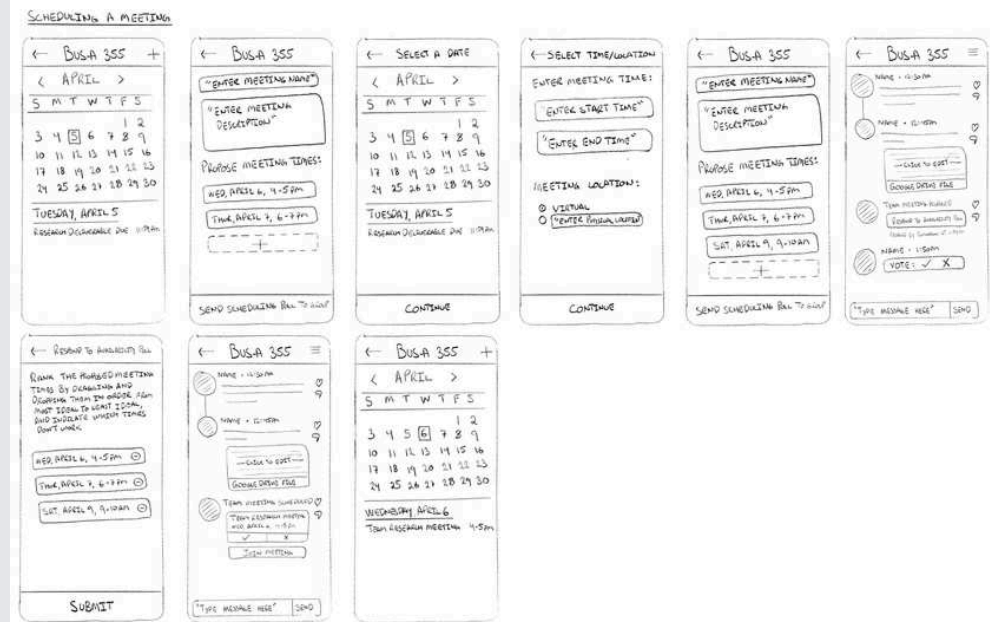 SCHEDULING A MEETING
← BUS-A 355 +
< APRIL >
S M T W T F S
1 2
3 4 5 6 7 8 9
10 11 12 13 14 15 16
17 18 19 20 21 22 23
24 25 26 27 28 29 30
TUESDAY, APRIL 5
RESEARCH DELIVERABLE DUE 11:59PM
← BUS-A 355
"ENTER MEETING NAME"
"ENTER MEETING
DESCRIPTION"
PROPOSE MEETING TIMES:
WED, APRIL 6, 4-5PM
THUR, APRIL 7, 6-7PM
+
SEND SCHEDULING POLL TO GROUP
← SELECT A DATE
< APRIL >
S M T W T F S
1 2
3 4 5 6 7 8 9
10 11 12 13 14 15 16
17 18 19 20 21 22 23
24 25 26 27 28 29 30
TUESDAY, APRIL 5
RESEARCH DELIVERABLE DUE 11:59PM
CONTINUE
← SELECT TIME/LOCATION
ENTER MEETING TIME:
"ENTER START TIME"
"ENTER END TIME"
MEETING LOCATION:
VIRTUAL
"ENTER PHYSICAL LOCATION"
CONTINUE
← BUS-A 355
"ENTER MEETING NAME"
"ENTER MEETING
DESCRIPTION"
PROPOSE MEETING TIMES:
WED, APRIL 6, 4-5PM
THUR, APRIL 7, 6-7PM
SAT, APRIL 9, 9-10AM
+
SEND SCHEDULING POLL TO GROUP
← BUS-A 355
NAME • 12:30PM
NAME • 12:45PM
-CLICK TO EDIT-
GOOGLE DRIVE FILE
TEAM MEETING
RESPOND TO AVAILABILITY POLL
NAME • 1:50PM
VOTE: ✓ X
"TYPE MESSAGE HERE" SEND
← RESPOND TO AVAILABILITY POLL
RANK THE PROPOSED MEETING
TIMES BY DRAGGING AND
DROPPING THEM IN ORDER FROM
MOST IDEAL TO LEAST IDEAL,
AND INDICATE WHICH TIMES
DON'T WORK
WED, APRIL 6, 4-5PM
THUR, APRIL 7, 6-7PM
SAT, APRIL 9, 9-10AM
SUBMIT
← BUS-A 355
NAME • 12:30PM
NAME • 12:45PM
-CLICK TO EDIT-
GOOGLE DRIVE FILE
TEAM MEETING SCHEDULED
TEAM RESEARCH MEETING
WED, APRIL 6, 4-5PM
✓ X
JOIN MEETING
"TYPE MESSAGE HERE" SEND
← BUS-A 355 +
< APRIL >
S M T W T F S
1 2
3 4 5 6 7 8 9
10 11 12 13 14 15 16
17 18 19 20 21 22 23
24 25 26 27 28 29 30
WEDNESDAY APRIL 6
TEAM RESEARCH MEETING 4-5PM